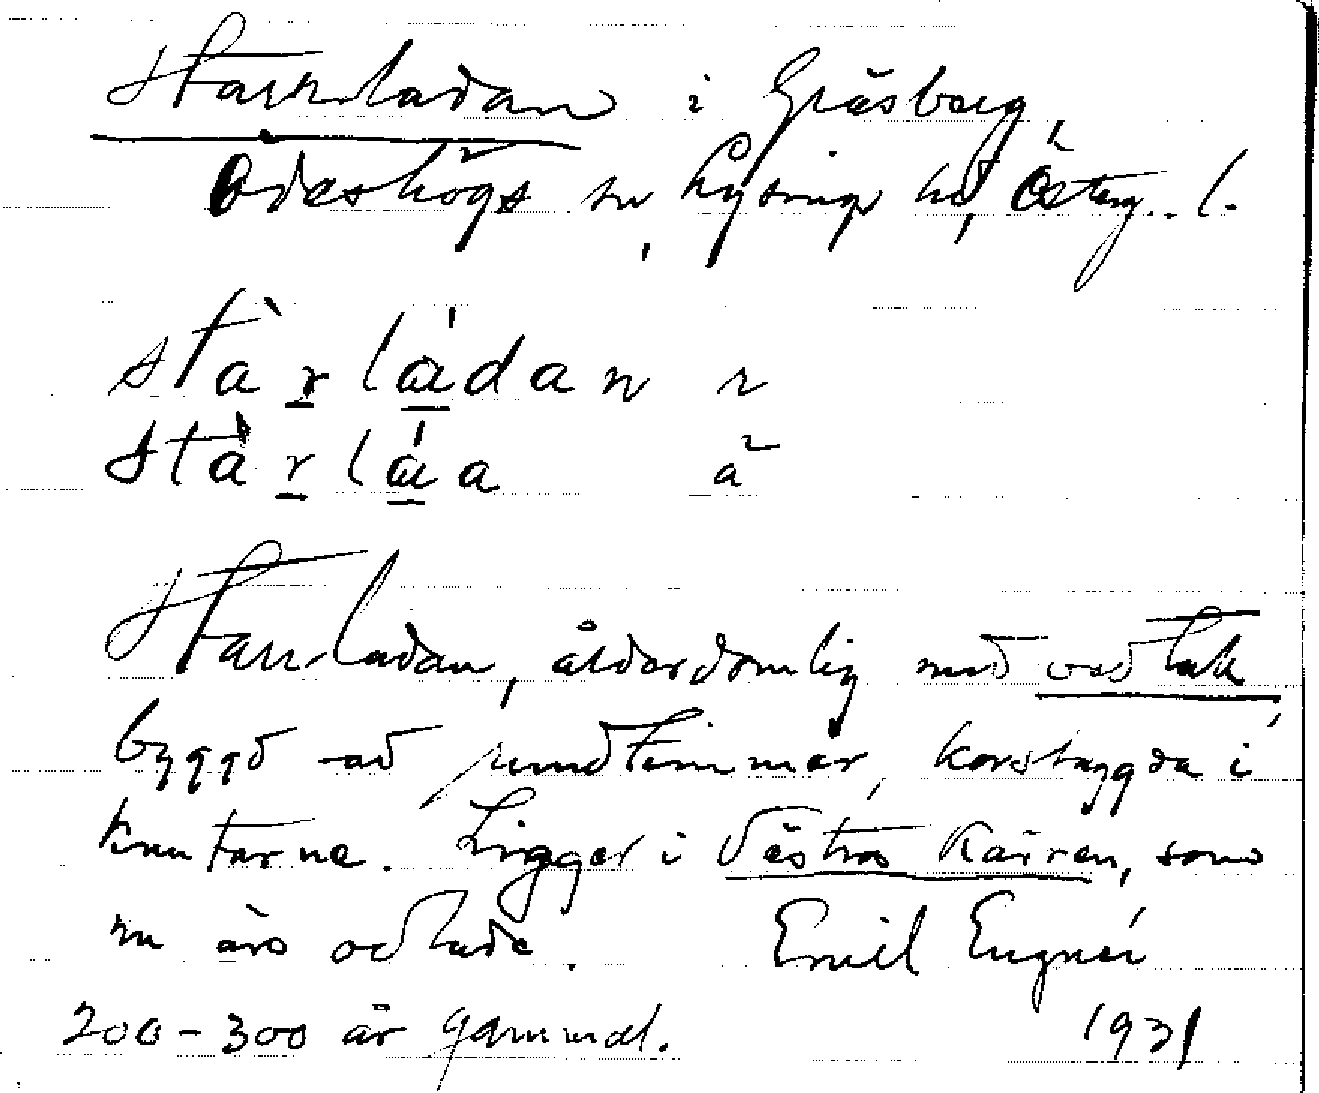 Starrladan i Gräsberg,
Ödeshögs sn, Lysings hd, Österg. l.
stàrládan
stàrláa
Starrladan, ålderdomlig med vedtak
byggd av rundtimmer, korsbyggda i
knutarne. Ligger i Västra Kärren, som
nu äro odlade. Emil Engné
200-300 år gammal. 1931